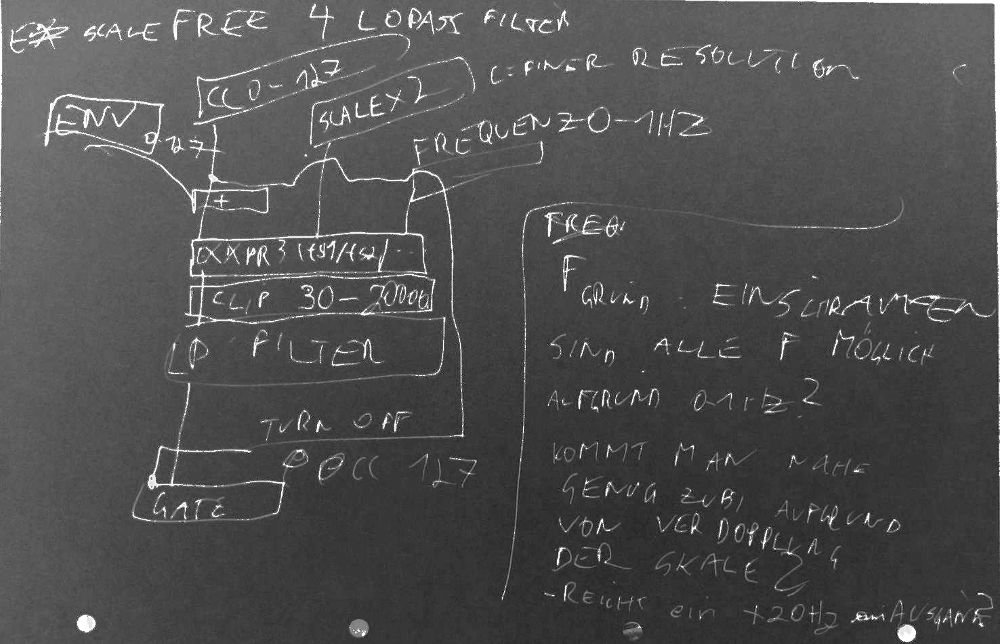 SCALE FREE 4 LOPASS FILTER
CC 0-127
SCALE X 2
FINER RESOLUTION
ENV
0-127
FREQUENZ 0-1HZ
+
CLIP 30-20000
LP FILTER
TURN OFF
CC 127
GATE
FREQ.
F GRUND: EINSCHRAUFEN
SIND ALLE F MÖGLICH
AUFGRUND 0-1HZ?
KOMMT MAN NAHE
GENUG ZUBI AUFGRUND
VON VERDOPPLUNG
DER SKALE?
-REICHT ein +20Hz am AUSGANG?